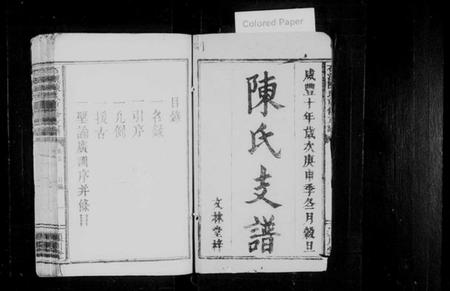 Colored Paper
咸豐十年歲次庚申季冬月穀旦
陳氏支譜
文林堂梓
目錄
一名錄
一引序
一凡例
一援古
一聖諭廣訓序并條目